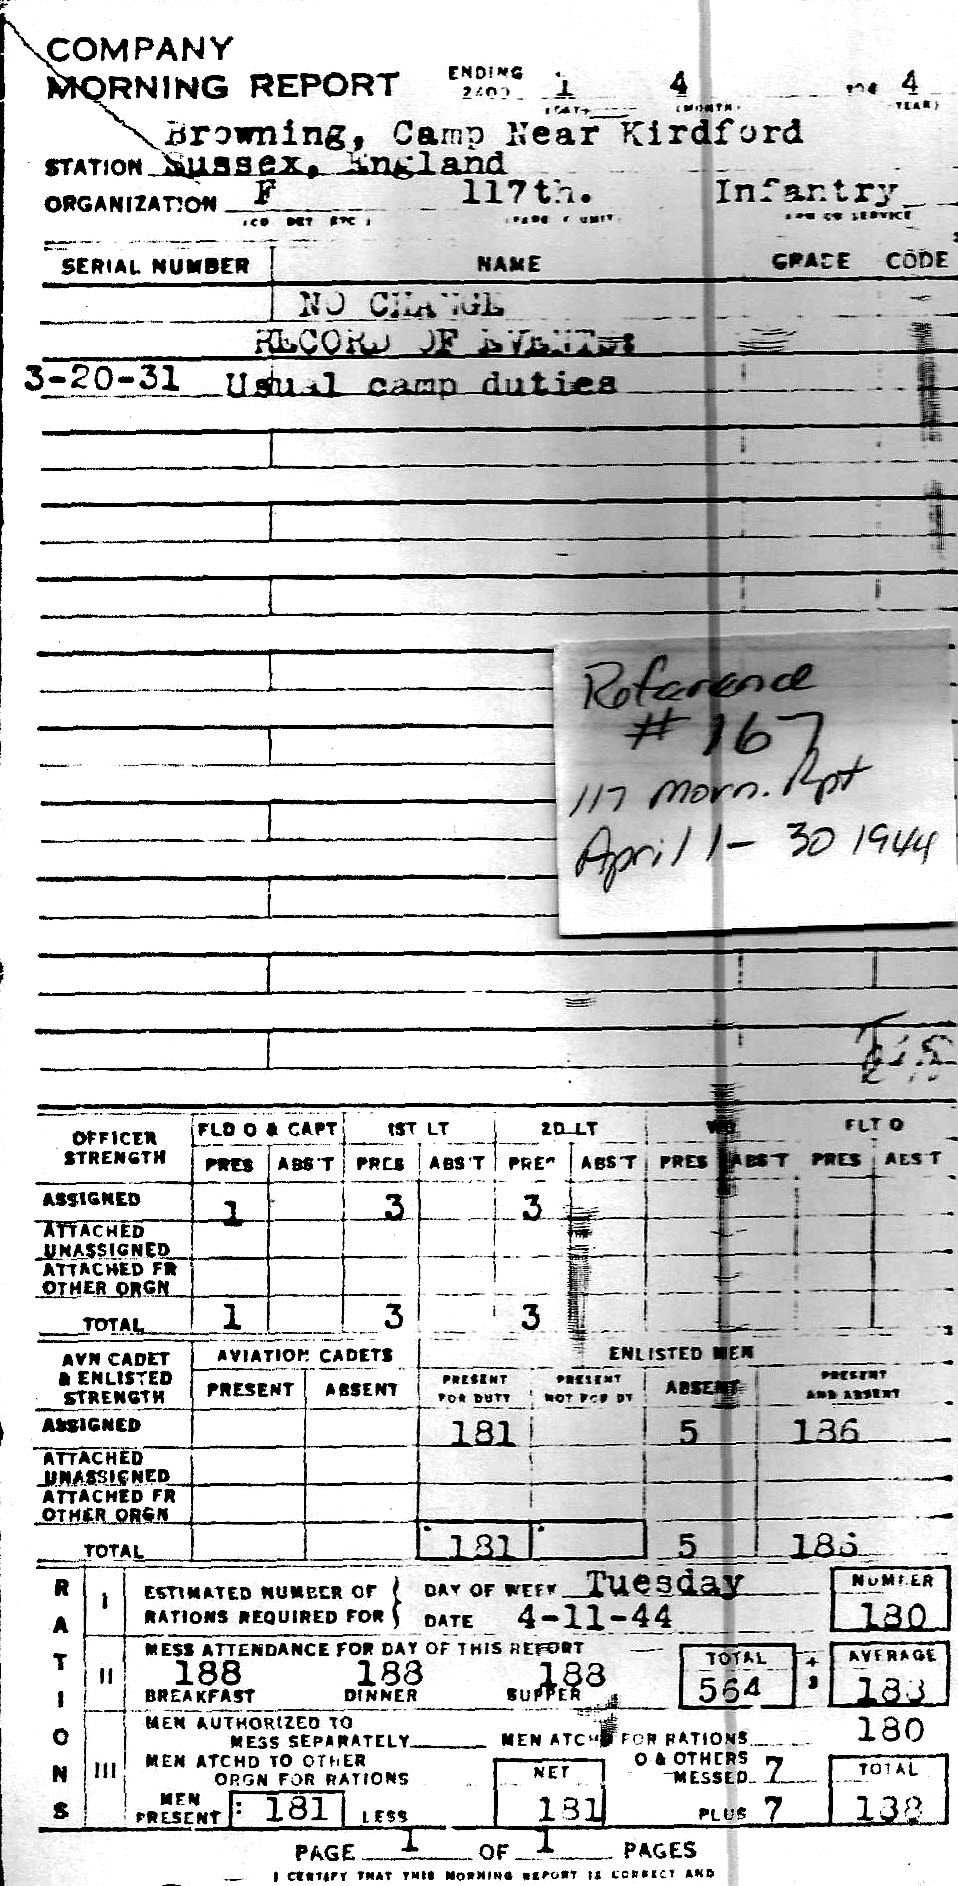 COMPANY
MORNING REPORT ENDING 2400 1 4 194 4
(DAY) (MONTH) (YEAR)
Browning, Camp Near Kirdford
STATION Sussex, England
ORGANIZATION F 117th. Infantry
SERIAL NUMBER NAME GRADE CODE
NO CHANGE
RECORD OF EVENTS:
3-20-31 Usual camp duties
Reference
# 167
117 Morn. Rpt
April 1 - 30 1944
OFFICER STRENGTH FLD O & CAPT 1ST LT 2D LT WO FLT O
PRES ABS'T PRES ABS'T PRES ABS'T PRES ABS'T PRES ABS'T
ASSIGNED 1 3 3
ATTACHED UNASSIGNED
ATTACHED FR OTHER ORGN
TOTAL 1 3 3
AVN CADET & ENLISTED STRENGTH AVIATION CADETS ENLISTED MEN
PRESENT ABSENT PRESENT FOR DUTY PRESENT NOT FOR DT ABSENT PRESENT AND ABSENT
ASSIGNED 181 5 186
ATTACHED UNASSIGNED
ATTACHED FR OTHER ORGN
TOTAL 181 5 186
RATIONS
I ESTIMATED NUMBER OF RATIONS REQUIRED FOR DAY OF WEEK Tuesday NUMBER
DATE 4-11-44 180
II MESS ATTENDANCE FOR DAY OF THIS REPORT TOTAL ÷ 3 AVERAGE
188 188 188 564 188
BREAKFAST DINNER SUPPER
III MEN AUTHORIZED TO MESS SEPARATELY MEN ATCHD FOR RATIONS 180
MEN ATCHD TO OTHER ORGN FOR RATIONS NET O & OTHERS MESSED 7 TOTAL
MEN PRESENT : 181 LESS 181 PLUS 7 188
PAGE 1 OF 1 PAGES
I CERTIFY THAT THIS MORNING REPORT IS CORRECT AND